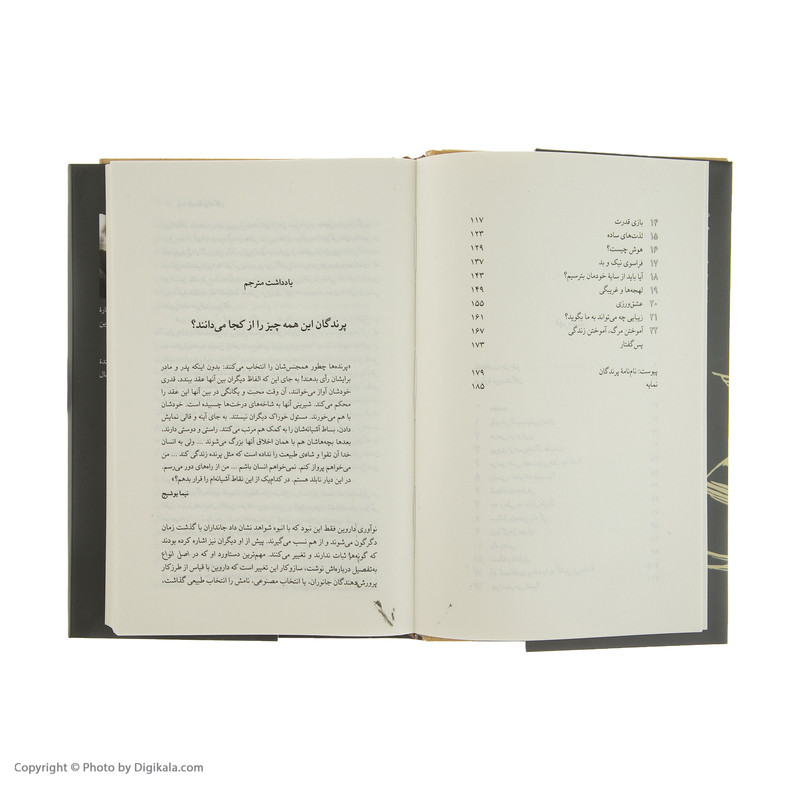 ۱۴ بازی قدرت ۱۱۷
۱۵ لذت‌های ساده ۱۲۳
۱۶ هوش چیست؟ ۱۲۹
۱۷ فراسوی نیک و بد ۱۳۷
۱۸ آیا باید از سایهٔ خودمان بترسیم؟ ۱۴۳
۱۹ لهجه‌ها و غریبگی ۱۴۹
۲۰ عشق‌ورزی ۱۵۵
۲۱ زیبایی چه می‌تواند به ما بگوید؟ ۱۶۱
۲۲ آموختن مرگ، آموختن زندگی ۱۶۷
پس‌گفتار ۱۷۳
پیوست: نام‌نامهٔ پرندگان ۱۷۹
نمایه ۱۸۵
یادداشت مترجم
پرندگان این همه چیز را از کجا می‌دانند؟
«پرنده‌ها چطور همجنس‌شان را انتخاب می‌کنند: بدون اینکه پدر و مادر
برایشان رأی بدهند! به جای این که الفاظ دیگران بین آنها عقد ببندد، قدری
خودشان آواز می‌خوانند، آن وقت محبت و یگانگی در بین آنها این عقد را
محکم می‌کند. شیرینی آنها به شاخه‌های درخت‌ها چسبیده است. خودشان
با هم می‌خورند. مسئول خوراک دیگران نیستند. به جای آینه و قالی نمایش
دادن، بساط آشیانه‌شان را به کمک هم مرتب می‌کنند. راستی و دوستی دارند.
بعدها بچه‌هاشان هم با همان اخلاق آنها بزرگ می‌شوند ... ولی به انسان
خدا آن تقوا و شادی طبیعت را نداده است که مثل پرنده زندگی کند ... من
می‌خواهم پرواز کنم. نمی‌خواهم انسان باشم ... من از راه‌های دور می‌رسم.
در این دیار نابلد هستم. در کدام‌یک از این نقاط آشیانه‌ام را قرار بدهم؟»
نیما یوشیج
نوآوری داروین فقط این نبود که با انبوه شواهد نشان داد جانداران با گذشت زمان
دگرگون می‌شوند و از هم نسب می‌گیرند. پیش از او دیگران نیز اشاره کرده بودند
که گونه‌ها ثبات ندارند و تغییر می‌کنند. مهم‌ترین دستاورد او که در اصل انواع
به‌تفصیل درباره‌اش نوشت، سازوکار این تغییر است که داروین با قیاس از طرز کار
پرورش‌دهندگان جانوران، یا انتخاب مصنوعی، نامش را انتخاب طبیعی گذاشت،
Copyright © Photo by Digikala.com